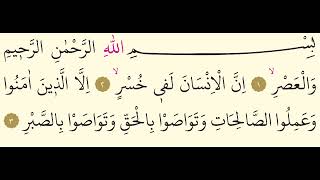 بِسْــــــــــمِ اللهِ الرَّحْمٰنِ الرَّحٖيمِ
وَالْعَصْرِۙ ١ اِنَّ الْاِنْسَانَ لَفٖي خُسْرٍۙ ٢ اِلَّا الَّذٖينَ اٰمَنُوا
وَعَمِلُوا الصَّالِحَاتِ وَتَوَاصَوْا بِالْحَقِّ وَتَوَاصَوْا بِالصَّبْرِ ٣